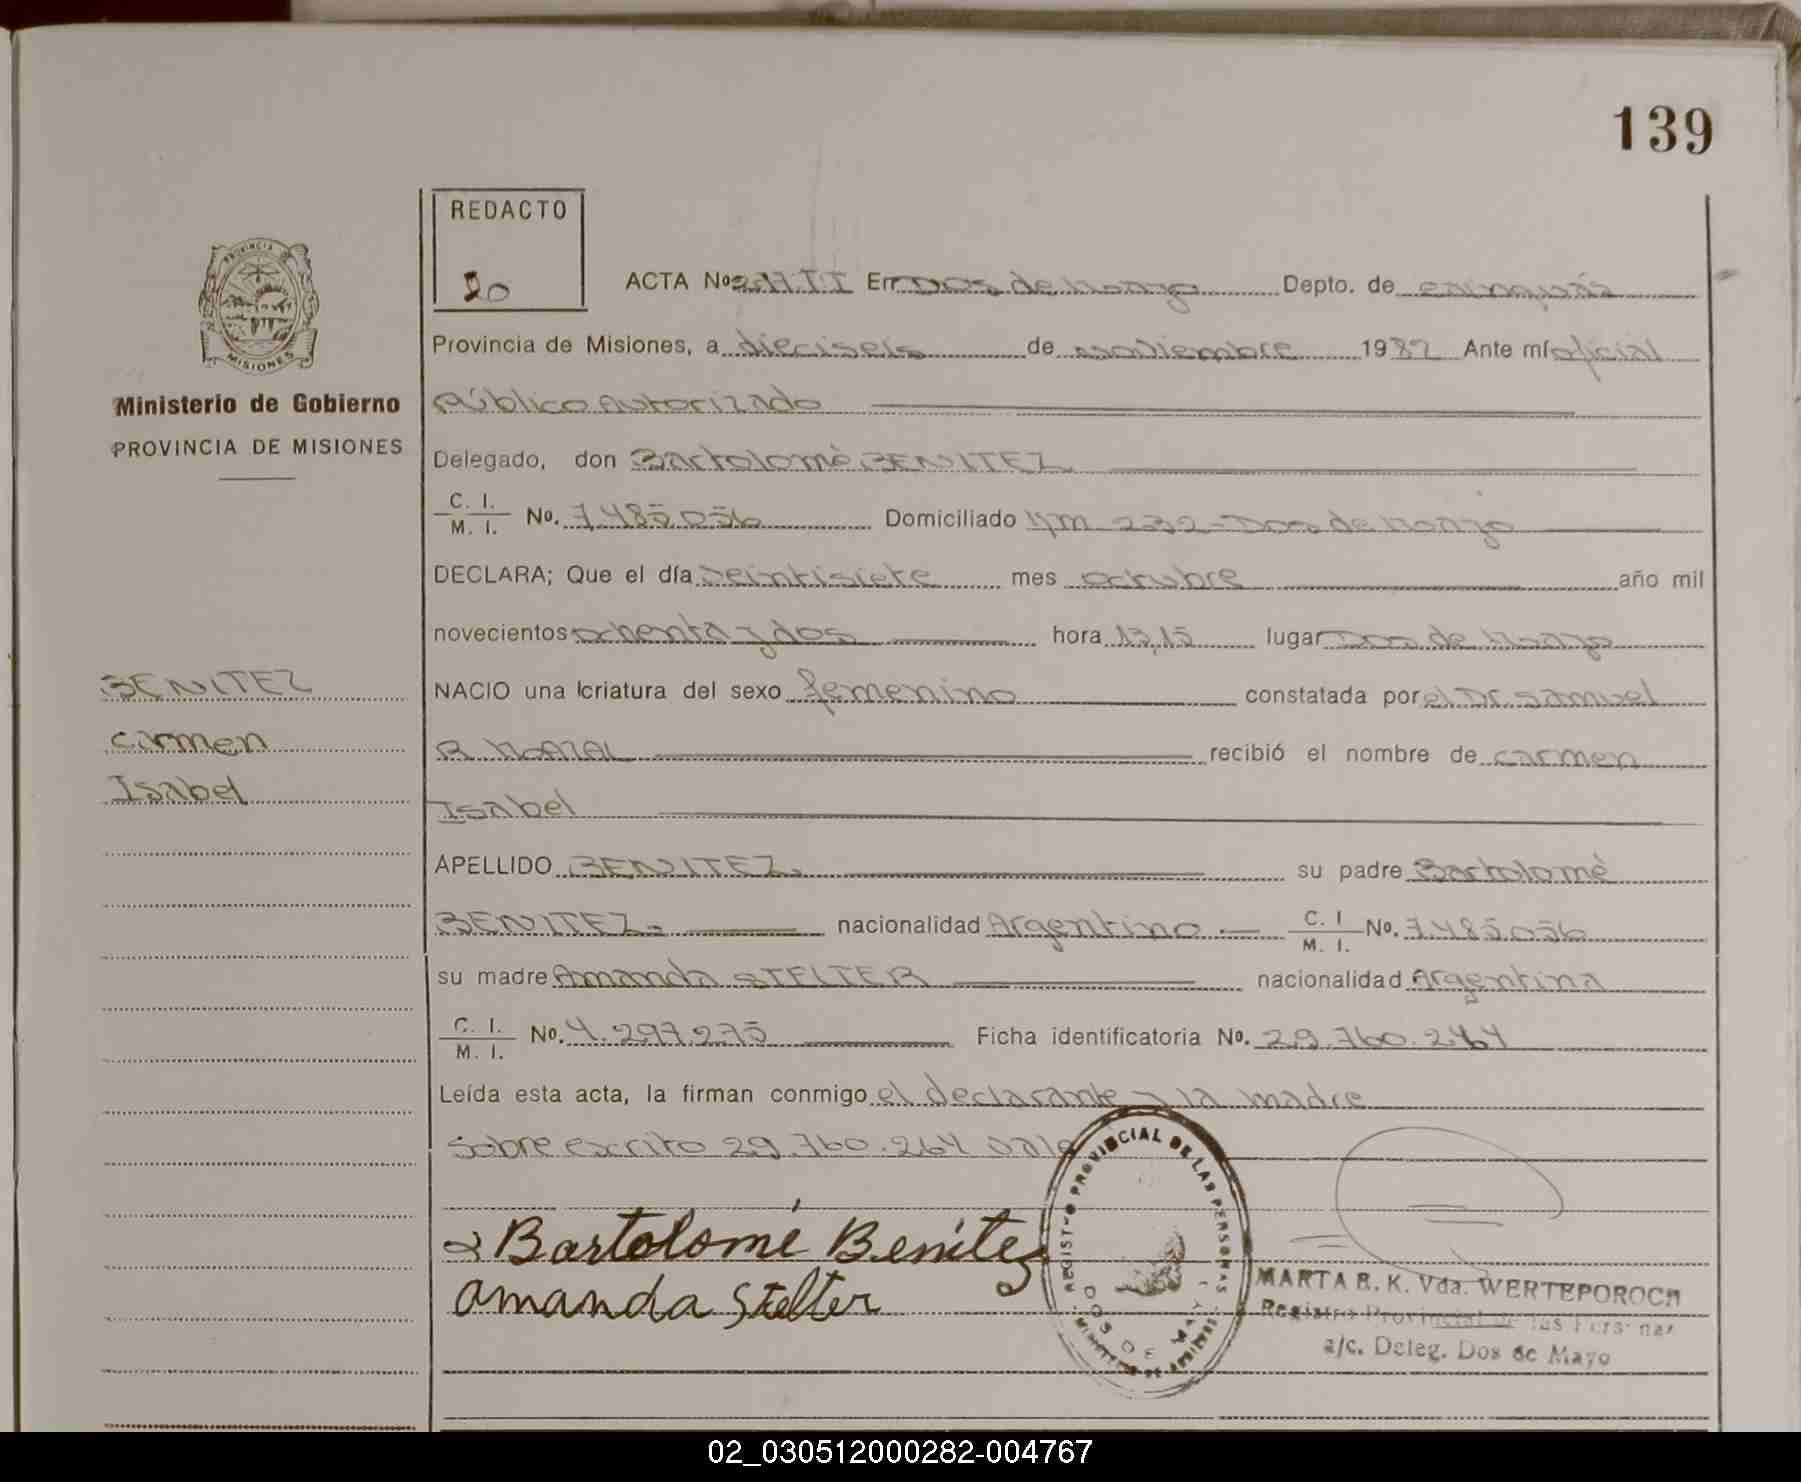 139
REDACTO
20
ACTA No 277 II En Dos de Mayo Depto. de Cainguás
Provincia de Misiones, a dieciseis de noviembre 1982 Ante mí oficial
Público Autorizado
Ministerio de Gobierno
PROVINCIA DE MISIONES
Delegado, don Bartolomé BENITEZ
C. I.
M. I. No. 7.485.056 Domiciliado Km 232-Dos de Mayo
DECLARA; Que el día veintisiete mes octubre año mil
novecientos ochenta y dos hora 13,15 lugar Dos de Mayo
BENITEZ
Carmen
Isabel
NACIO una criatura del sexo femenino constatada por el Dr. Samuel
R. recibió el nombre de Carmen
Isabel
APELLIDO BENITEZ. su padre Bartolomé
BENITEZ.- nacionalidad Argentino C. I
M. I. No. 7.485.056
su madre Amanda STELTER nacionalidad Argentina
C. I.
M. I. No. 4.297.275 Ficha identificatoria No. 29.760.264
Leída esta acta, la firman conmigo el declarante y la madre
sobre escrito 29.760.264 vale
Bartolomé Benitez
Amanda Stelter
REGISTRO PROVINCIAL DE LAS PERSONAS
DOS DE MAYO
MARTA R. K. Vda. WERTEPOROCH
Registro Provincial de las Personas
a/c. Deleg. Dos de Mayo
02_030512000282-004767